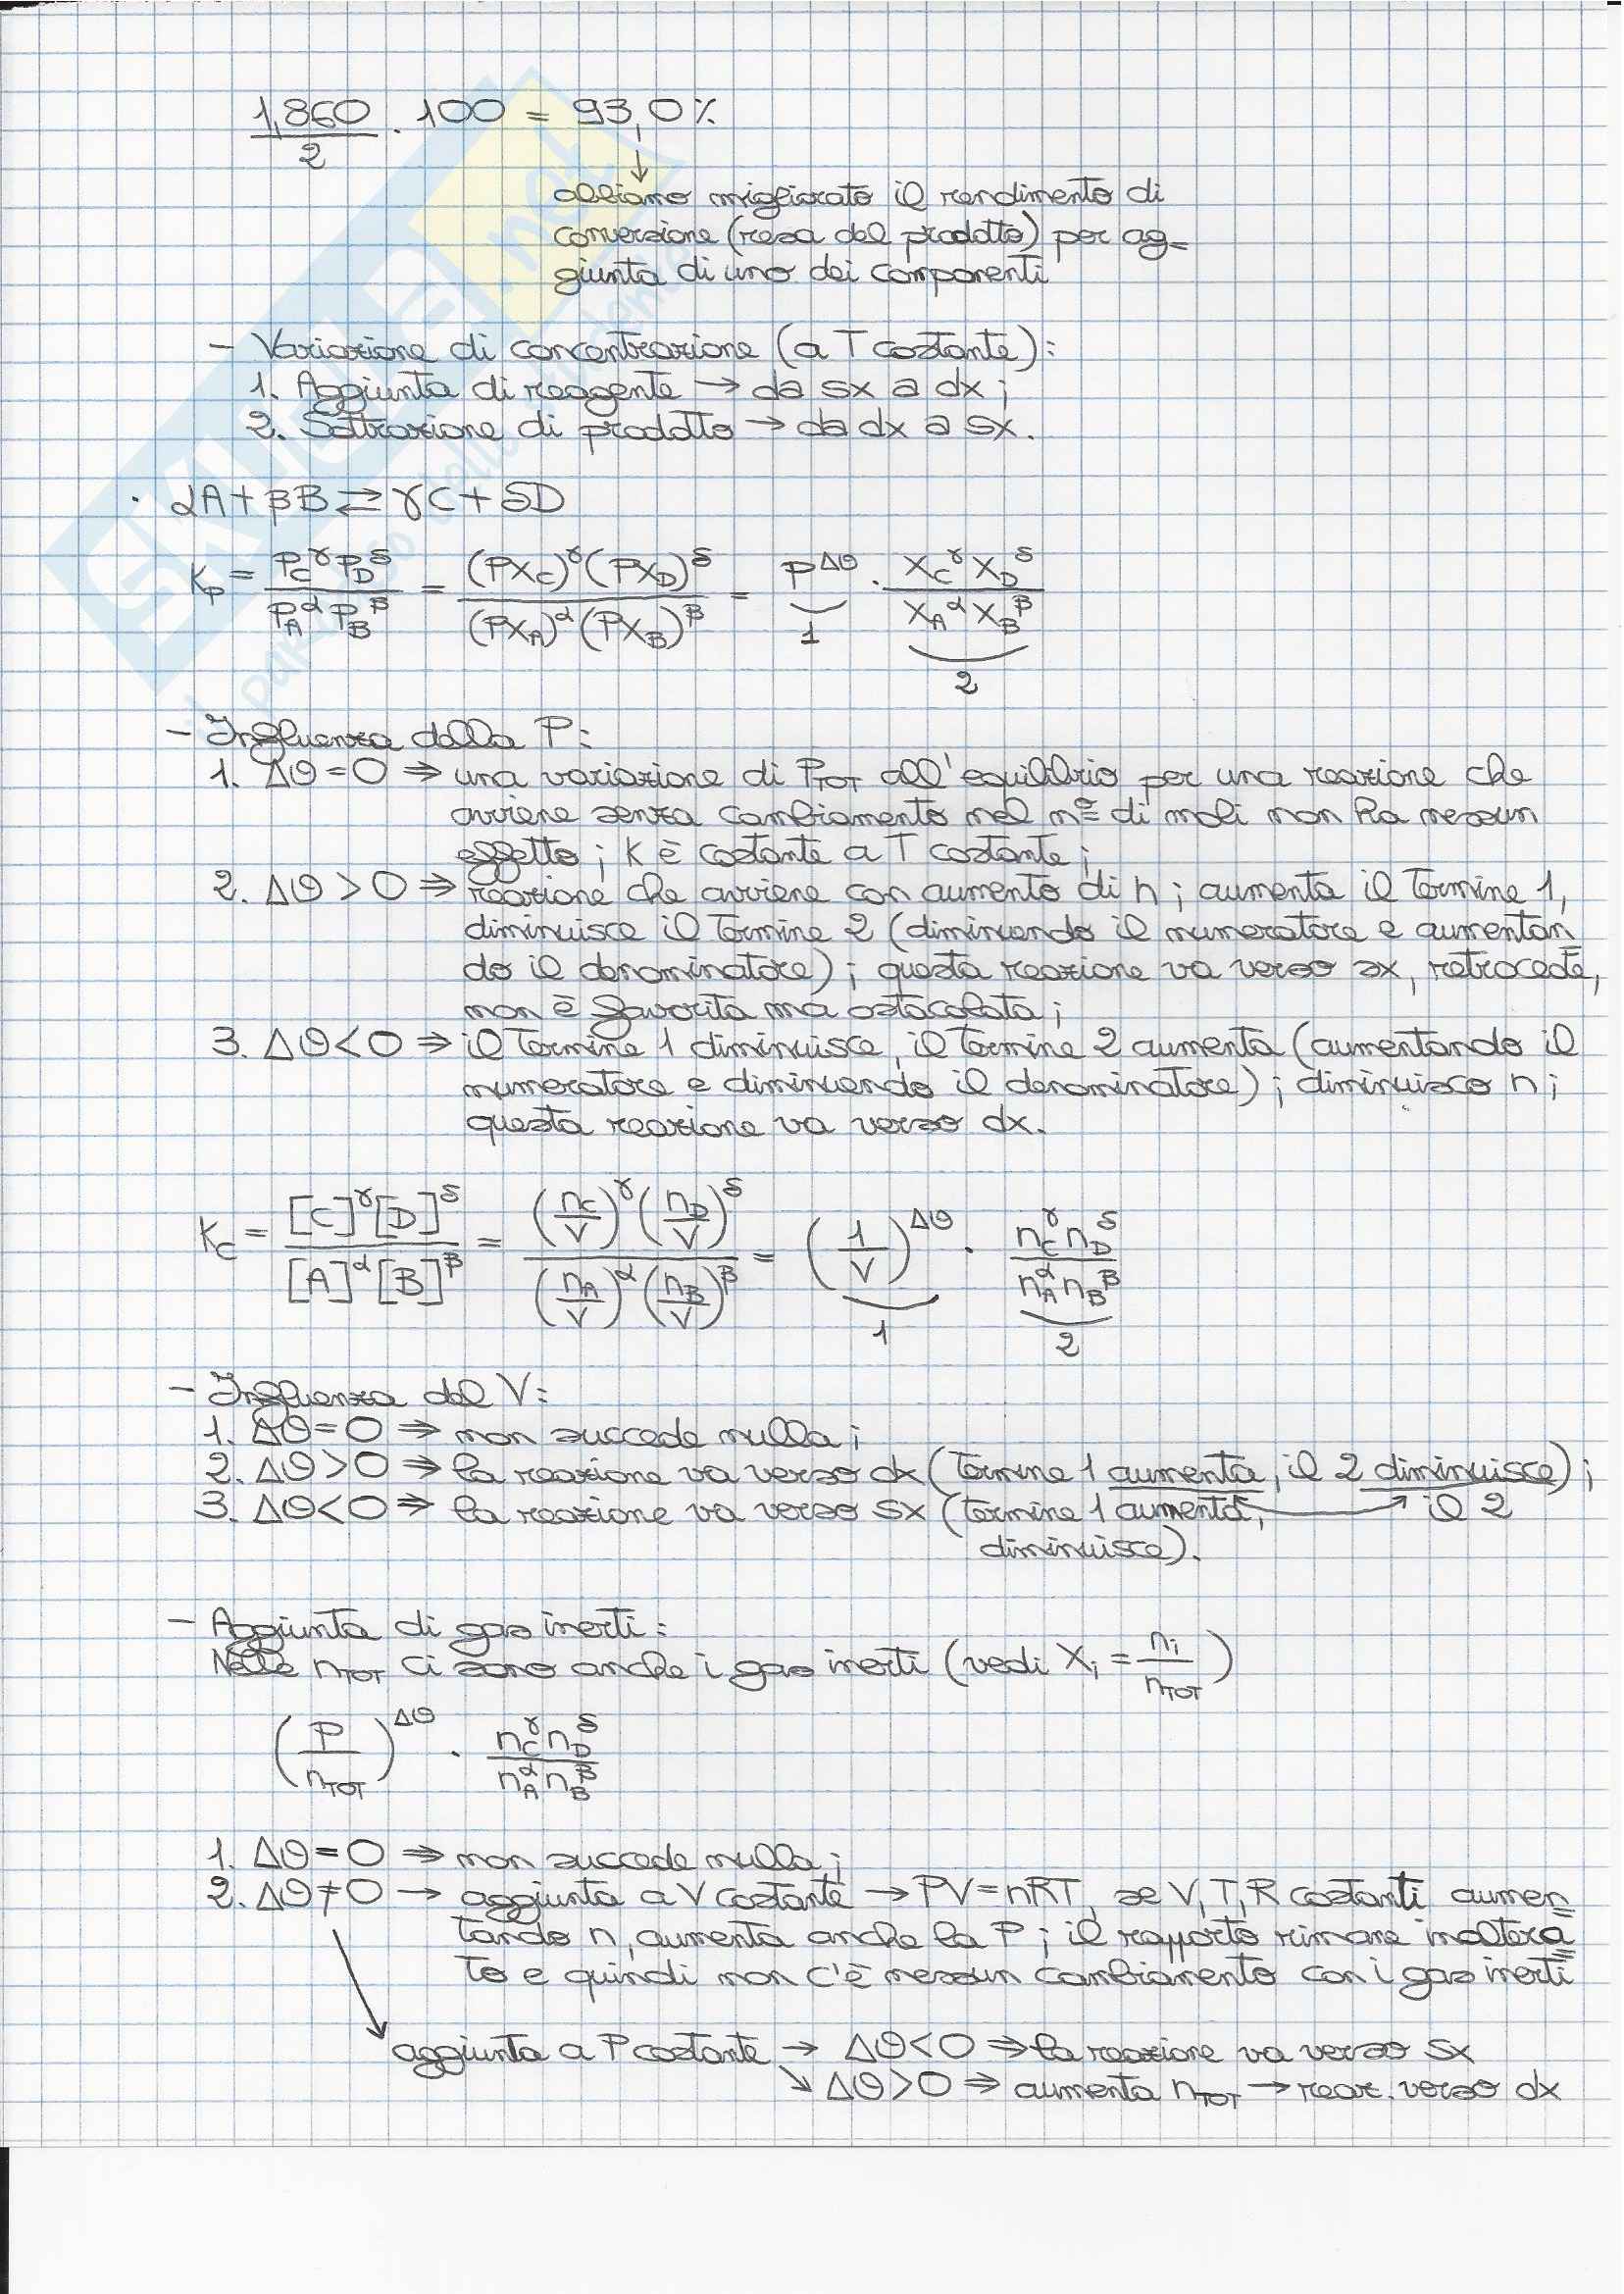 1,860/2 · 100 = 93,0%
↓
abbiamo migliorato il rendimento di
conversione (resa del prodotto) per ag=
giunta di uno dei componenti
- Variazione di concentrazione (a T costante):
1. Aggiunta di reagente → da sx a dx;
2. Sottrazione di prodotto → da dx a sx.
· αA + βB ⇄ γC + δD
Kp = P_C^γ P_D^δ / P_A^α P_B^β = (PX_C)^γ (PX_D)^δ / (PX_A)^α (PX_B)^β = P^Δϑ · X_C^γ X_D^δ / X_A^α X_B^β
1 2
- Influenza della P:
1. Δϑ = 0 ⇒ una variazione di P_TOT all'equilibrio per una reazione che
avviene senza cambiamento nel nº di moli non ha nessun
effetto; K è costante a T costante;
2. Δϑ > 0 ⇒ reazione che avviene con aumento di n; aumenta il termine 1,
diminuisce il termine 2 (diminuendo il numeratore e aumentan=
do il denominatore); questa reazione va verso sx, retrocede,
non è favorita ma ostacolata;
3. Δϑ < 0 ⇒ il termine 1 diminuisce, il termine 2 aumenta (aumentando il
numeratore e diminuendo il denominatore); diminuisco n;
questa reazione va verso dx.
K_C = [C]^γ [D]^δ / [A]^α [B]^β = (n_C/V)^γ (n_D/V)^δ / (n_A/V)^α (n_B/V)^β = (1/V)^Δϑ · n_C^γ n_D^δ / n_A^α n_B^β
1 2
- Influenza del V:
1. Δϑ = 0 ⇒ non succede nulla;
2. Δϑ > 0 ⇒ la reazione va verso dx (termine 1 aumenta, il 2 diminuisce);
3. Δϑ < 0 ⇒ la reazione va verso sx (termine 1 aumenta, il 2
diminuisce).
- Aggiunta di gas inerti:
Nelle n_TOT ci sono anche i gas inerti (vedi X_i = n_i/n_TOT)
(P/n_TOT)^Δϑ · n_C^γ n_D^δ / n_A^α n_B^β
1. Δϑ = 0 ⇒ non succede nulla;
2. Δϑ ≠ 0 → aggiunta a V costante → PV = nRT, se V, T, R costanti aumen=
tando n, aumenta anche la P; il rapporto rimane inaltera=
to e quindi non c'è nessun cambiamento con i gas inerti
aggiunta a P costante → Δϑ < 0 ⇒ la reazione va verso sx
↘ Δϑ > 0 ⇒ aumenta n_TOT → reaz. verso dx